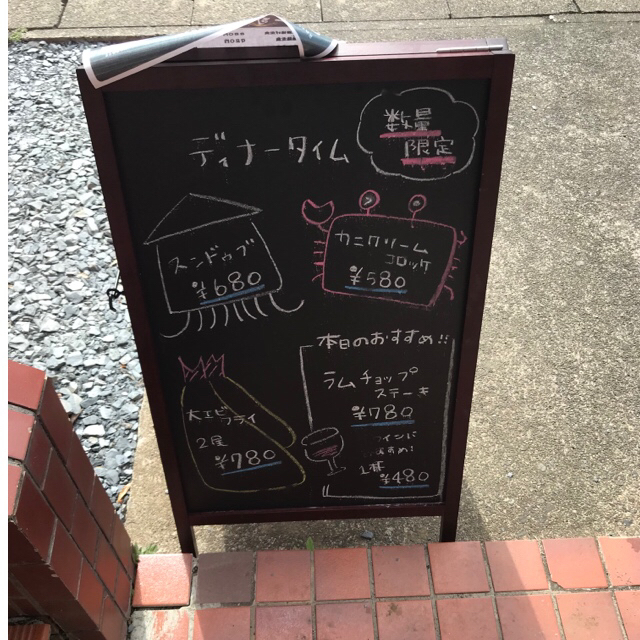 数量
限定
ディナータイム
スンドゥブ
¥680
カニクリーム
コロッケ
¥580
本日のおすすめ!!
ラムチョップ
ステーキ
¥780
大エビ
フライ
2尾
¥780
1杯
¥480